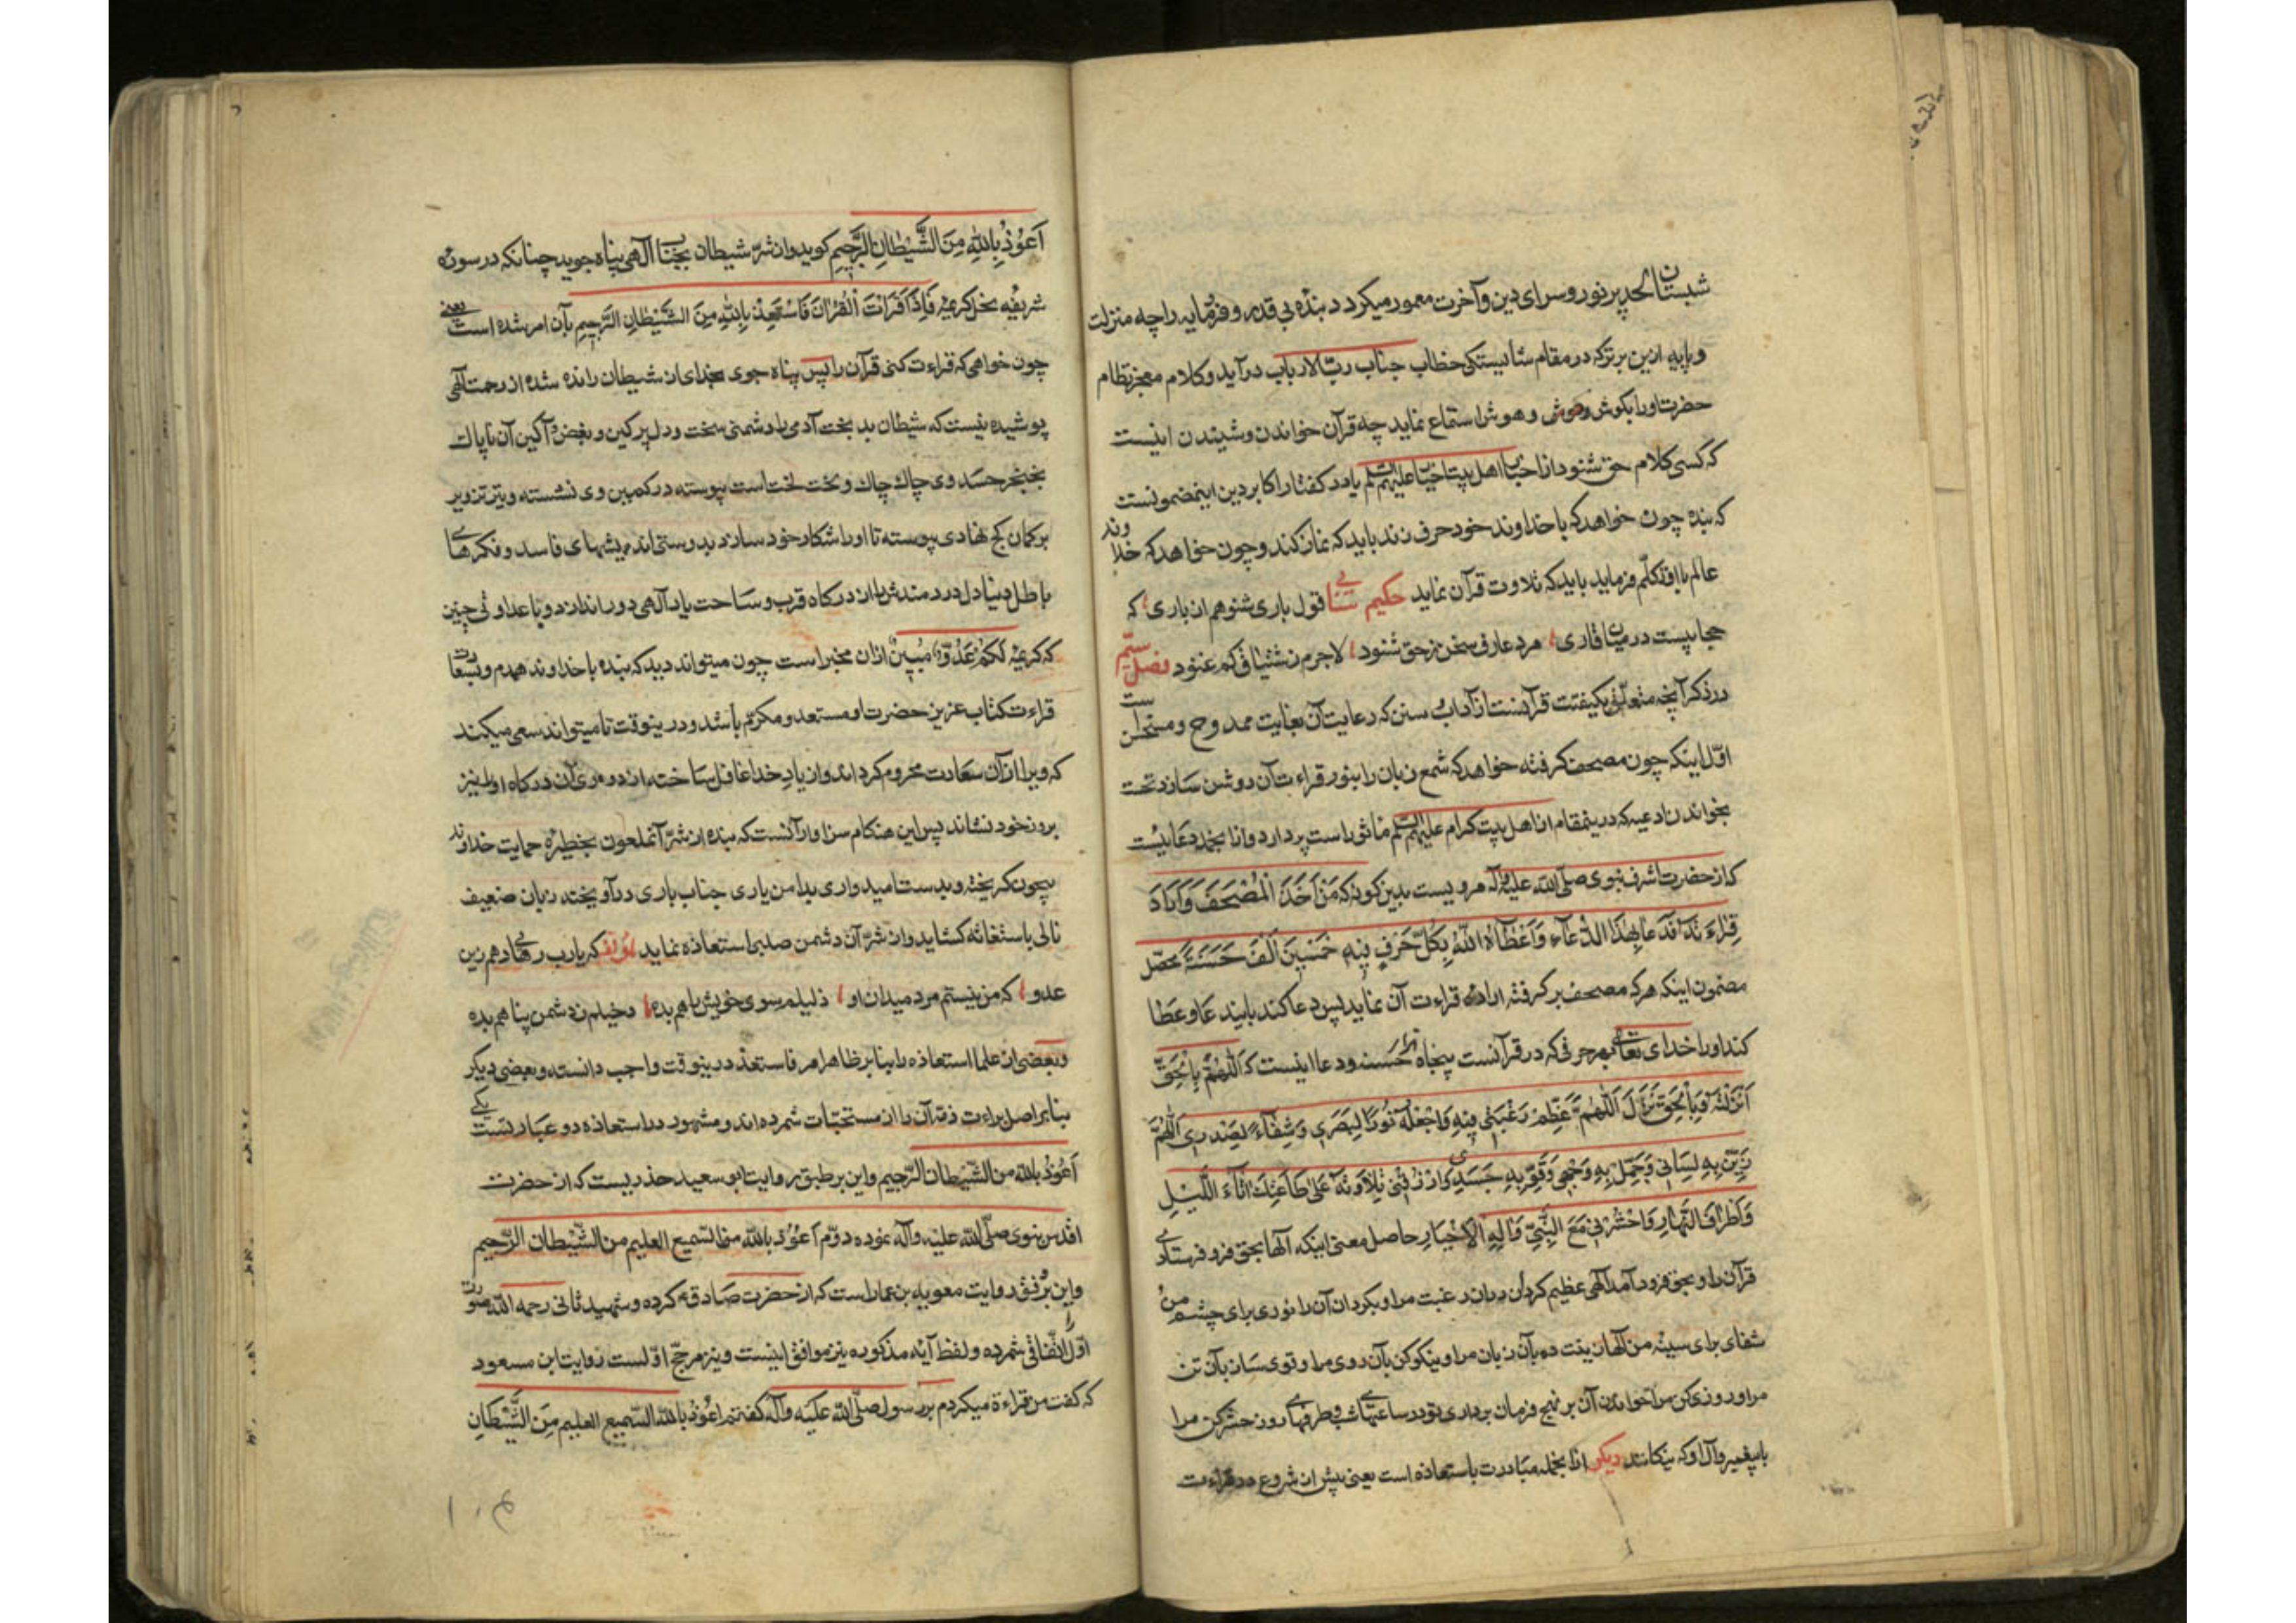 شبستان لحد پر نور و سرای دین و آخرت معمور میکردد بندهٔ بی قدر و فرومایه را چه منزلت
و پایه ازین برتر که در مقام شایستکی خطاب جناب رب الارباب درآید و کلام معجز نظام
حضرت او را بکوش و هوش استماع نماید چه قرآن خواندن و شنیدن اینست
که کسی کلام حق شنود از احباب اهل بیت علیهم السلم یا در کفتار اکابر دین اینمضمونست
که بنده چون خواهد که با خداوند خود حرف زند باید که نماز کند و چون خواهد که خداوند
عالم با او تکلم فرماید باید که تلاوت قرآن نماید حکیم سنایی قول باری شنو هم از باری که
حجابیست در میان قاری مرد عارف سخن ز حق شنود لاجرم ز اشتیاق کم غنود فصل سیم
در ذکر آنچه متعلق بکیفیت قرآنست از آداب و سنن که رعایت آن بغایت ممدوح و مستحسن است
اول اینکه چون مصحف کرفته خواهد که شمع زبان را بنور قراءت آن روشن سازد نخست
بخواندن ادعیه که درینمقام از اهل بیت کرام علیهم السلم ماثور است پردازد و از آنجمله دعاییست
که از حضرت اشرف نبوی صلی الله علیه وآله مرویست بدین کونه که مَنْ اَخَذَ الْمُصْحَفَ وَاَرَادَ
قِرَاءَتَهُ فَدَعَا بِهٰذَا الدُّعَآءِ وَاَعْطَاهُ اللّٰهُ بِكُلِّ حَرْفٍ فِيهِ خَمْسِينَ اَلْفَ حَسَنَةٍ محصل
مضمون اینکه هرکه مصحف برکرفته ارادهٔ قراءت آن نماید پس دعا کند باین دعا و عطا
کند او را خدای تعالی بهر حرفی که در قرآنست پنجاه هزار حسنه و دعا اینست که اَللّٰهُمَّ بِالْحَقِّ
اَنْزَلْتَهُ وَبِالْحَقِّ نَزَلَ اَللّٰهُمَّ عَظِّمْ رَغْبَتِي فِيهِ وَاجْعَلْهُ نُورًا لِبَصَرِي وَشِفَآءً لِصَدْرِي اَللّٰهُمَّ
زَيِّنْ بِهِ لِسَانِي وَجَمِّلْ بِهِ وَجْهِي وَقَوِّ بِهِ جَسَدِي وَارْزُقْنِي تِلَاوَتَهُ عَلٰى طَاعَتِكَ اٰنَآءَ اللَّيْلِ
وَاَطْرَافَ النَّهَارِ وَاحْشُرْنِي مَعَ النَّبِيِّ وَاٰلِهِ الْاَخْيَارِ حاصل معنی اینکه آلها بحق فرو فرستادی
قرآن را و بحق فرود آمد آلهی عظیم کردان در آن رغبت مرا و بکردان آن را نوری برای چشم من و
شفای برای سینهٔ من آلها زینت ده بآن زبان مرا و نیکو کن بآن روی مرا و قوی ساز بآن تن
مرا و روزی کن مرا خواندن آن بر نهج فرمان برداری تو در ساعتهای شب و طرفهای روز و حشر کن مرا
با پیغمبر و آل او که نیکانند دیکر از آنجمله مبادرت باستعاذه است یعنی پیش از شروع در قراءت
اَعُوذُ بِاللّٰهِ مِنَ الشَّيْطَانِ الرَّجِيمِ کوید و از شرّ شیطان بجناب آلهی پناه جوید چنانکه در سورهٔ
شریفهٔ نحل کریمهٔ فَاِذَا قَرَأْتَ الْقُرْاٰنَ فَاسْتَعِذْ بِاللّٰهِ مِنَ الشَّيْطَانِ الرَّجِيمِ بآن امر شده است یعنی
چون خواهی که قراءت کنی قرآن را پس پناه جوی بخدای از شیطان رانده شده از رحمت آلهی
پوشیده نیست که شیطان بد بخت آدمی را دشمنی سخت و دل پر کین و بغض آکین آن ناپاك
بخنجر حسد وی چاك چاك و لخت لخت است پیوسته در کمین وی نشسته و تیر تزویر
بر کمان کج نهادی پیوسته تا او را شکار خود سازد بدوستی اندیشهای فاسد و فکرهای
باطل دنیا دل دردمندش را از درکاه قرب و ساحت یاد آلهی دور اندازد و با عداوتی چنین
که کریمهٔ لَكُمْ عَدُوٌّ مُبِينٌ از آن مخبر است چون میتواند دید که بنده با خداوند همدم و بسعادت
قراءت کتاب عزیز حضرت او مستعد و مکرّم باشد و درینوقت تا میتواند سعی میکند
که ویرا از آن سعادت محروم کرداند و از یاد خدا غافل ساخته از دوری آن درکاه او را نیز
بروز خود نشاند پس این هنکام سزاوار آنست که بنده از شرّ آنملعون بحظیرهٔ حمایت خداوند
بیچون کریخته و بدست امیدواری بدامن یاری جناب باری درآویخته زبان ضعیف
نالی باستغاثه کشاید و از شرّ آن دشمن صلبی استعاذه نماید لمؤلفه که یارب رهایی دهم زین
عدو که من نیستم مرد میدان او ذلیلم سوی خویش راهم بده دخیلم ز دشمن پناهم بده
و بعضی از علما استعاذه را بنا بر ظاهر امر فاستعذ درینوقت واجب دانسته و بعضی دیکر
بنا بر اصل براءت ذمه آن را از مستحبات شمرده اند و مشهور در استعاذه دو عبارتست یکی
اَعُوذُ بِاللّٰه من الشّيطان الرّجيم و این بر طبق روایت ابو سعید خدریست که از حضرت
اقدس نبوی صلّی الله علیه وآله نموده دوّم اَعُوذُ بالله من السّميع العليم من الشّيطان الرّجيم
و این بر وفق روایت معویه بن عمار است که از حضرت صادق ع کرده و شهید ثانی رحمه الله صورت
اوّل را اتّفاقی شمرده و لفظ آیهٔ مذکوره نیز موافق اینست و نیز مرجّح اوّلست روایت ابن مسعود
که کفت من قراءة میکردم بر رسول صلّی الله علیه وآله کفتم اعُوذُ بالله السّميع العليم مِنَ الشَّيْطَانِ